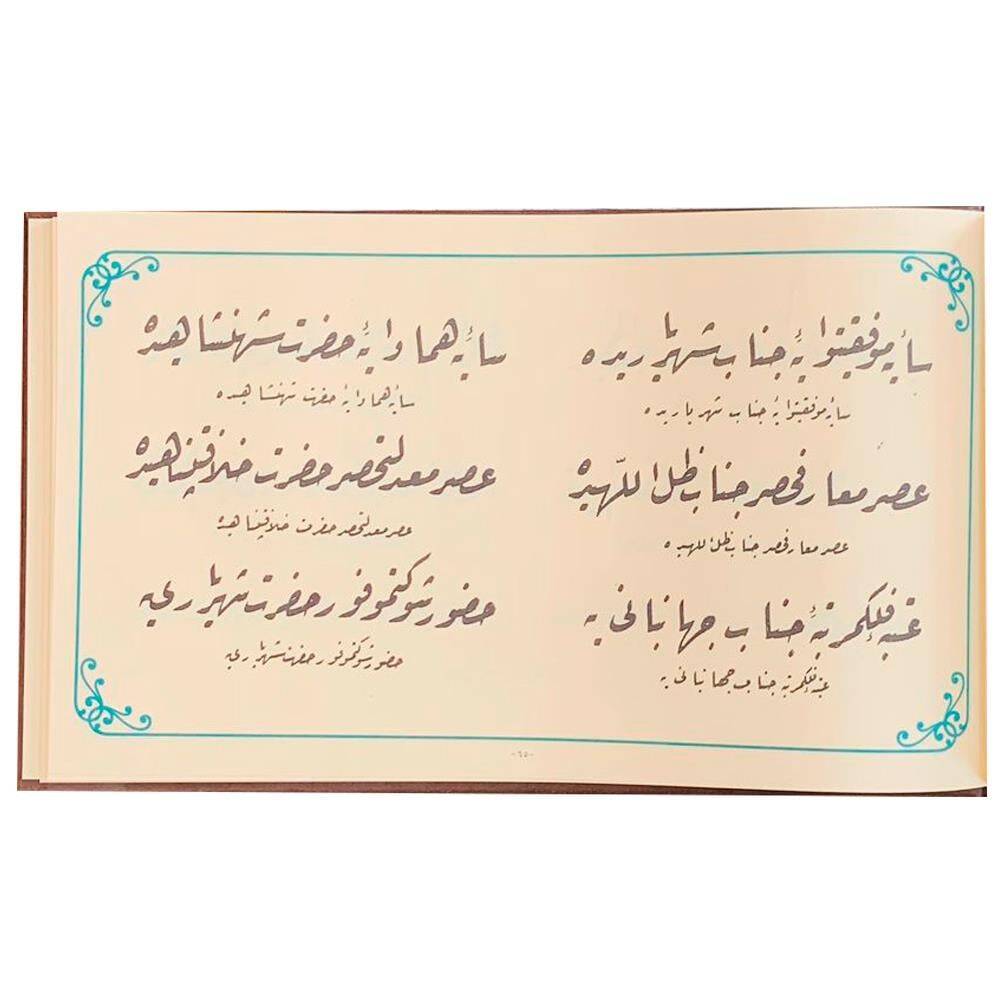 سايۀ موفقيتوايۀ جناب شهرياريده
سايۀ موفقيتوايۀ جناب شهرياريده
عصر معارفحصر جناب ظل اللّهيده
عصر معارفحصر جناب ظل اللهيده
عتبۀ فلكمرتبۀ جناب جهانبانى يه
عتبۀ فلكمرتبۀ جناب جهانبانى يه
سايۀ هماوايۀ حضرت شهنشاهيده
سايۀ هماوايۀ حضرت شهنشاهيده
عصر معدلتحصر حضرت خلافتپناهيده
عصر معدلتحصر حضرت خلافتپناهيده
حضور شوكتموفور حضرت شهرياري
حضور شوكتموفور حضرت شهرياري
-٦٥-